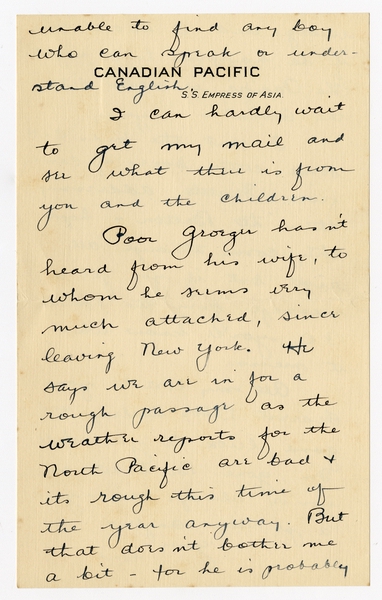 unable to find any boy
who can speak or under-
CANADIAN PACIFIC
stand English.
S.S. EMPRESS OF ASIA
I can hardly wait
to get my mail and
see what there is from
you and the children.
Poor Groeger hasn't
heard from his wife, to
whom he seems very
much attached, since
leaving New York. He
says we are in for a
rough passage as the
weather reports for the
North Pacific are bad &
its rough this time of
the year anyway. But
that doesn't bother me
a bit - for he is probably